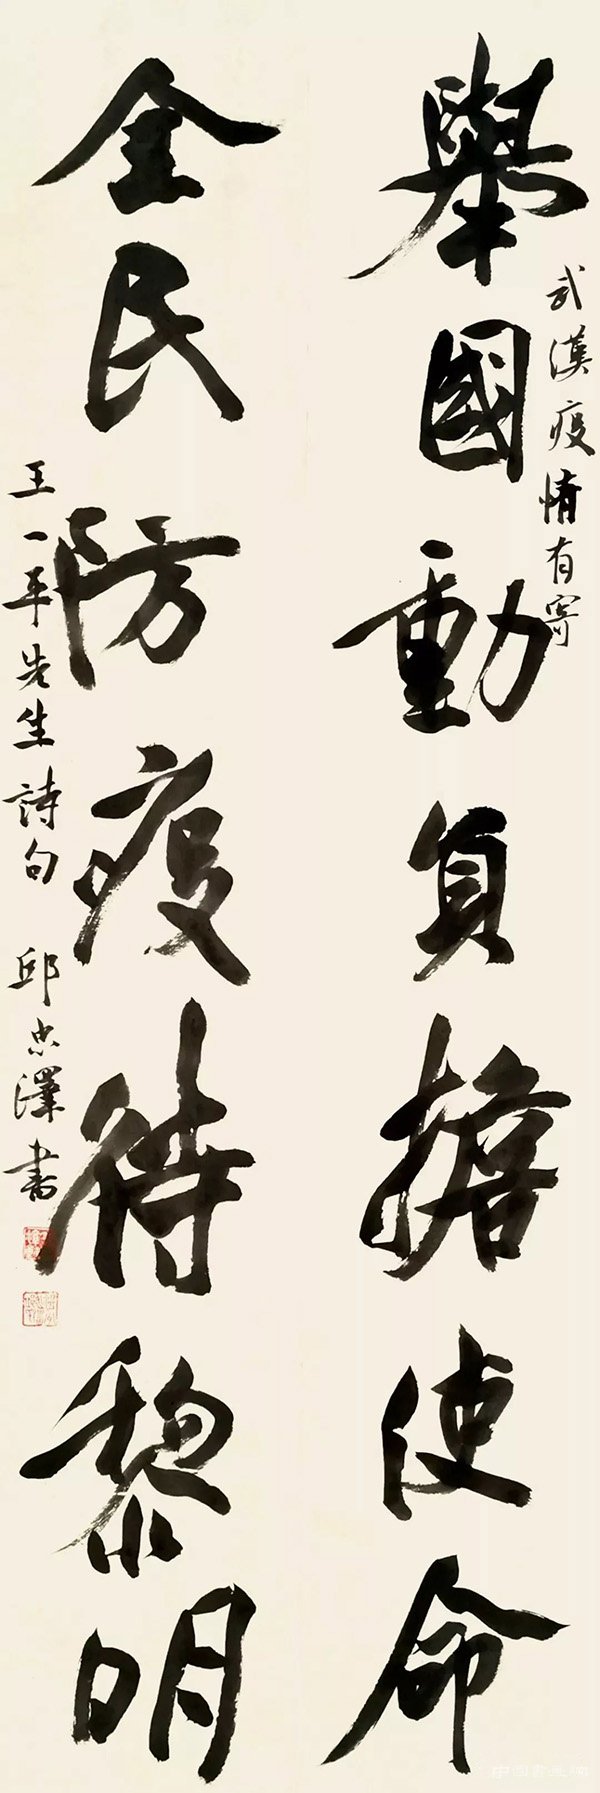 武漢疫情有寄
舉國動員擔使命
全民防疫待黎明
王一平先生詩句 邱忠澤書